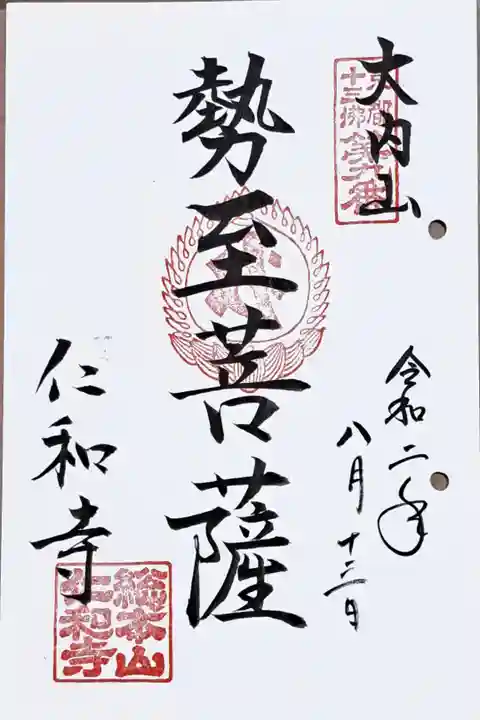 大内山
京都
十三佛第九番
令和二年
八月十三日
勢至菩薩
仁和寺
総本山
仁和寺